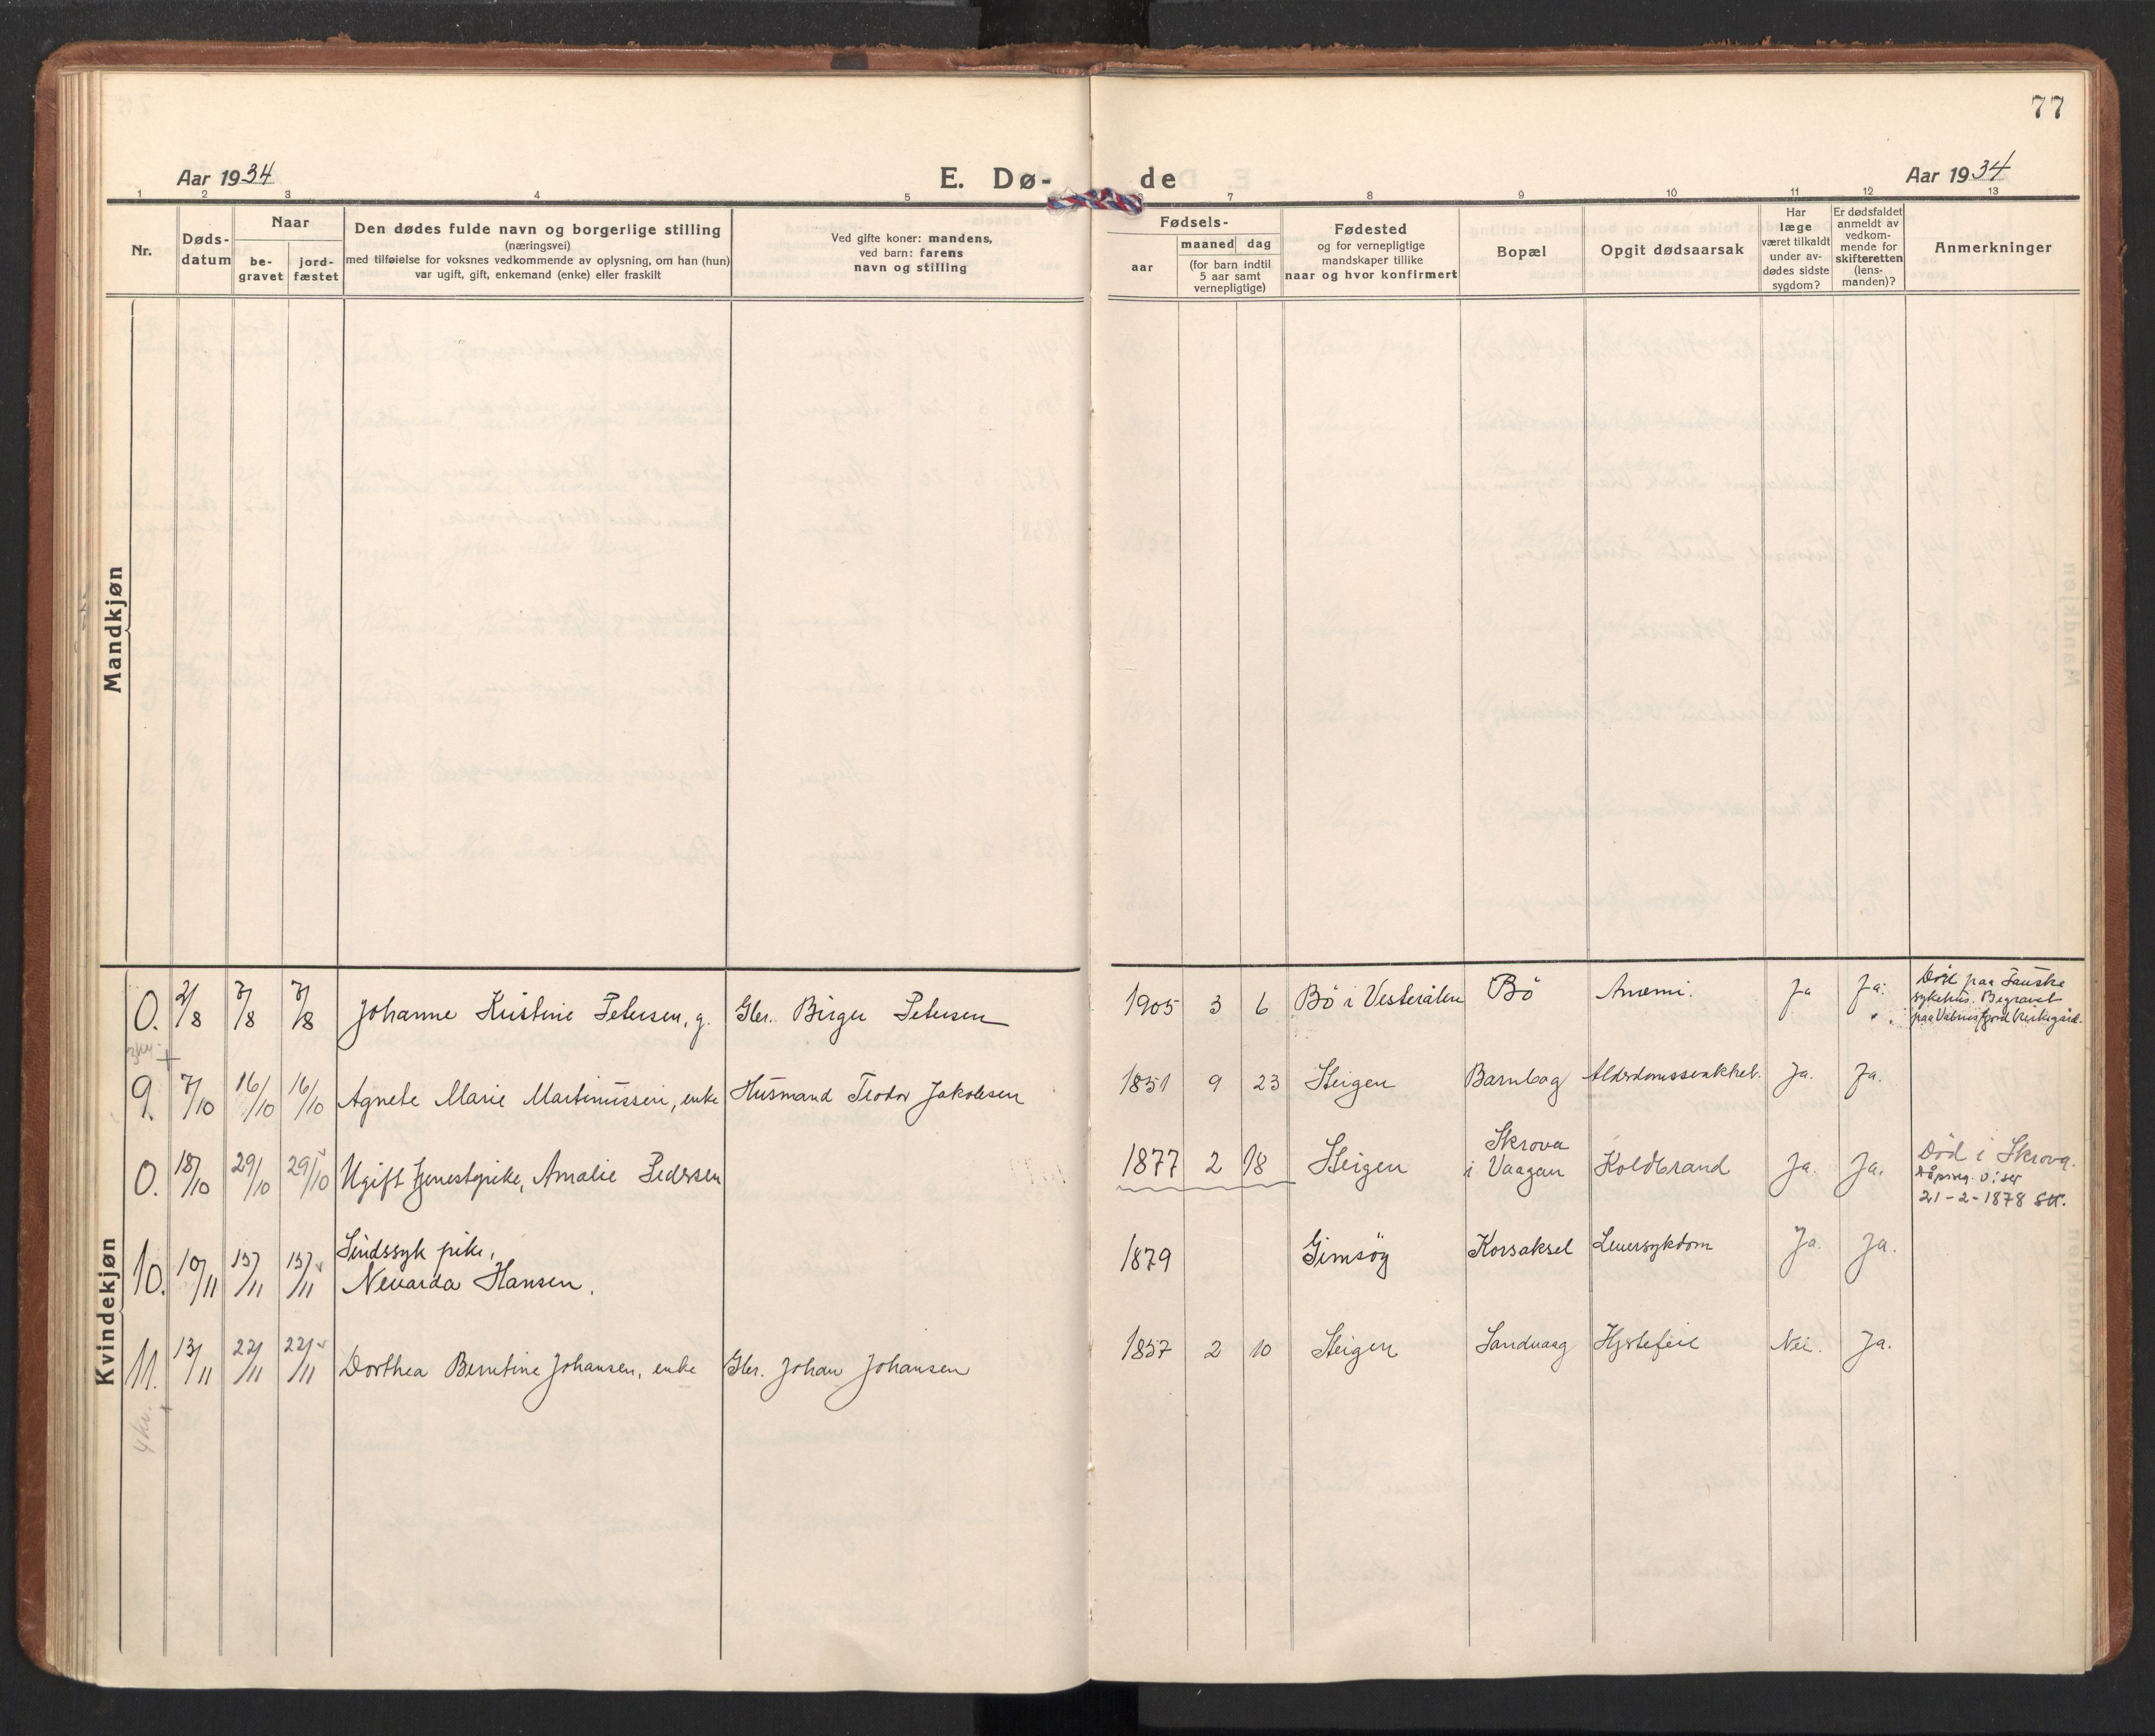 77
Aar 1934
E. Dø-
de
Aar 1934
1 2 3 4 5 6 7 8 9 10 11 12 13
Nr.
Døds-
datum
Naar
be-
gravet
jord-
fæstet
Den dødes fulde navn og borgerlige stilling
(næringsvei)
med tilføielse for voksnes vedkommende av oplysning, om han (hun)
var ugift, gift, enkemand (enke) eller fraskilt
Ved gifte koner: mandens,
ved barn: farens
navn og stilling
Fødsels-
aar
maaned dag
(for barn indtil
5 aar samt
vernepligtige)
Fødested
og for vernepligtige
mandskaper tillike
naar og hvor konfirmert
Bopæl
Opgit dødsaarsak
Har
læge
været tilkaldt
under av-
dødes sidste
sygdom?
Er dødsfaldet
anmeldt av
vedkom-
mende for
skifteretten
(lens-
manden)?
Anmerkninger
Mandkjøn
Kvindekjøn
0. 2/8 7/8 7/8 Johanne Kristine Petersen, g. Gbr. Birger Petersen 1905 3 6 Bö i Vesterålen Bö Anæmi. Ja Ja.
Död paa Fauske
sykehus. Begravet
paa Valnesfjord Kirkegård.
3 kv.
9. 7/10 16/10 16/10 Agnete Marie Martinussen, enke Husmand Teodor Jakobsen 1851 9 23 Steigen Barnbog Alderdomssvakhet. Ja. Ja.
0. 18/10 29/10 29/10 Ugift tjenestepike, Amalie Pedersen 1877 2 18 Steigen Skrova
i Vaagan Koldbrand Ja. Ja.
Död i Skrova.
Dåpsreg. viser
21-2-1878 Str.
10. 10/11 15/11 15/11 Sindssyk pike,
Nevarda Hansen. 1879 Gimsöy Korsaksel Leversykdom Ja. Ja.
11. 13/11 22/11 22/11 Dorthea Berntine Johansen, enke Gbr. Johan Johansen 1857 2 10 Steigen Sandvaag Hjertefeil Nei. Ja.
4 kv.